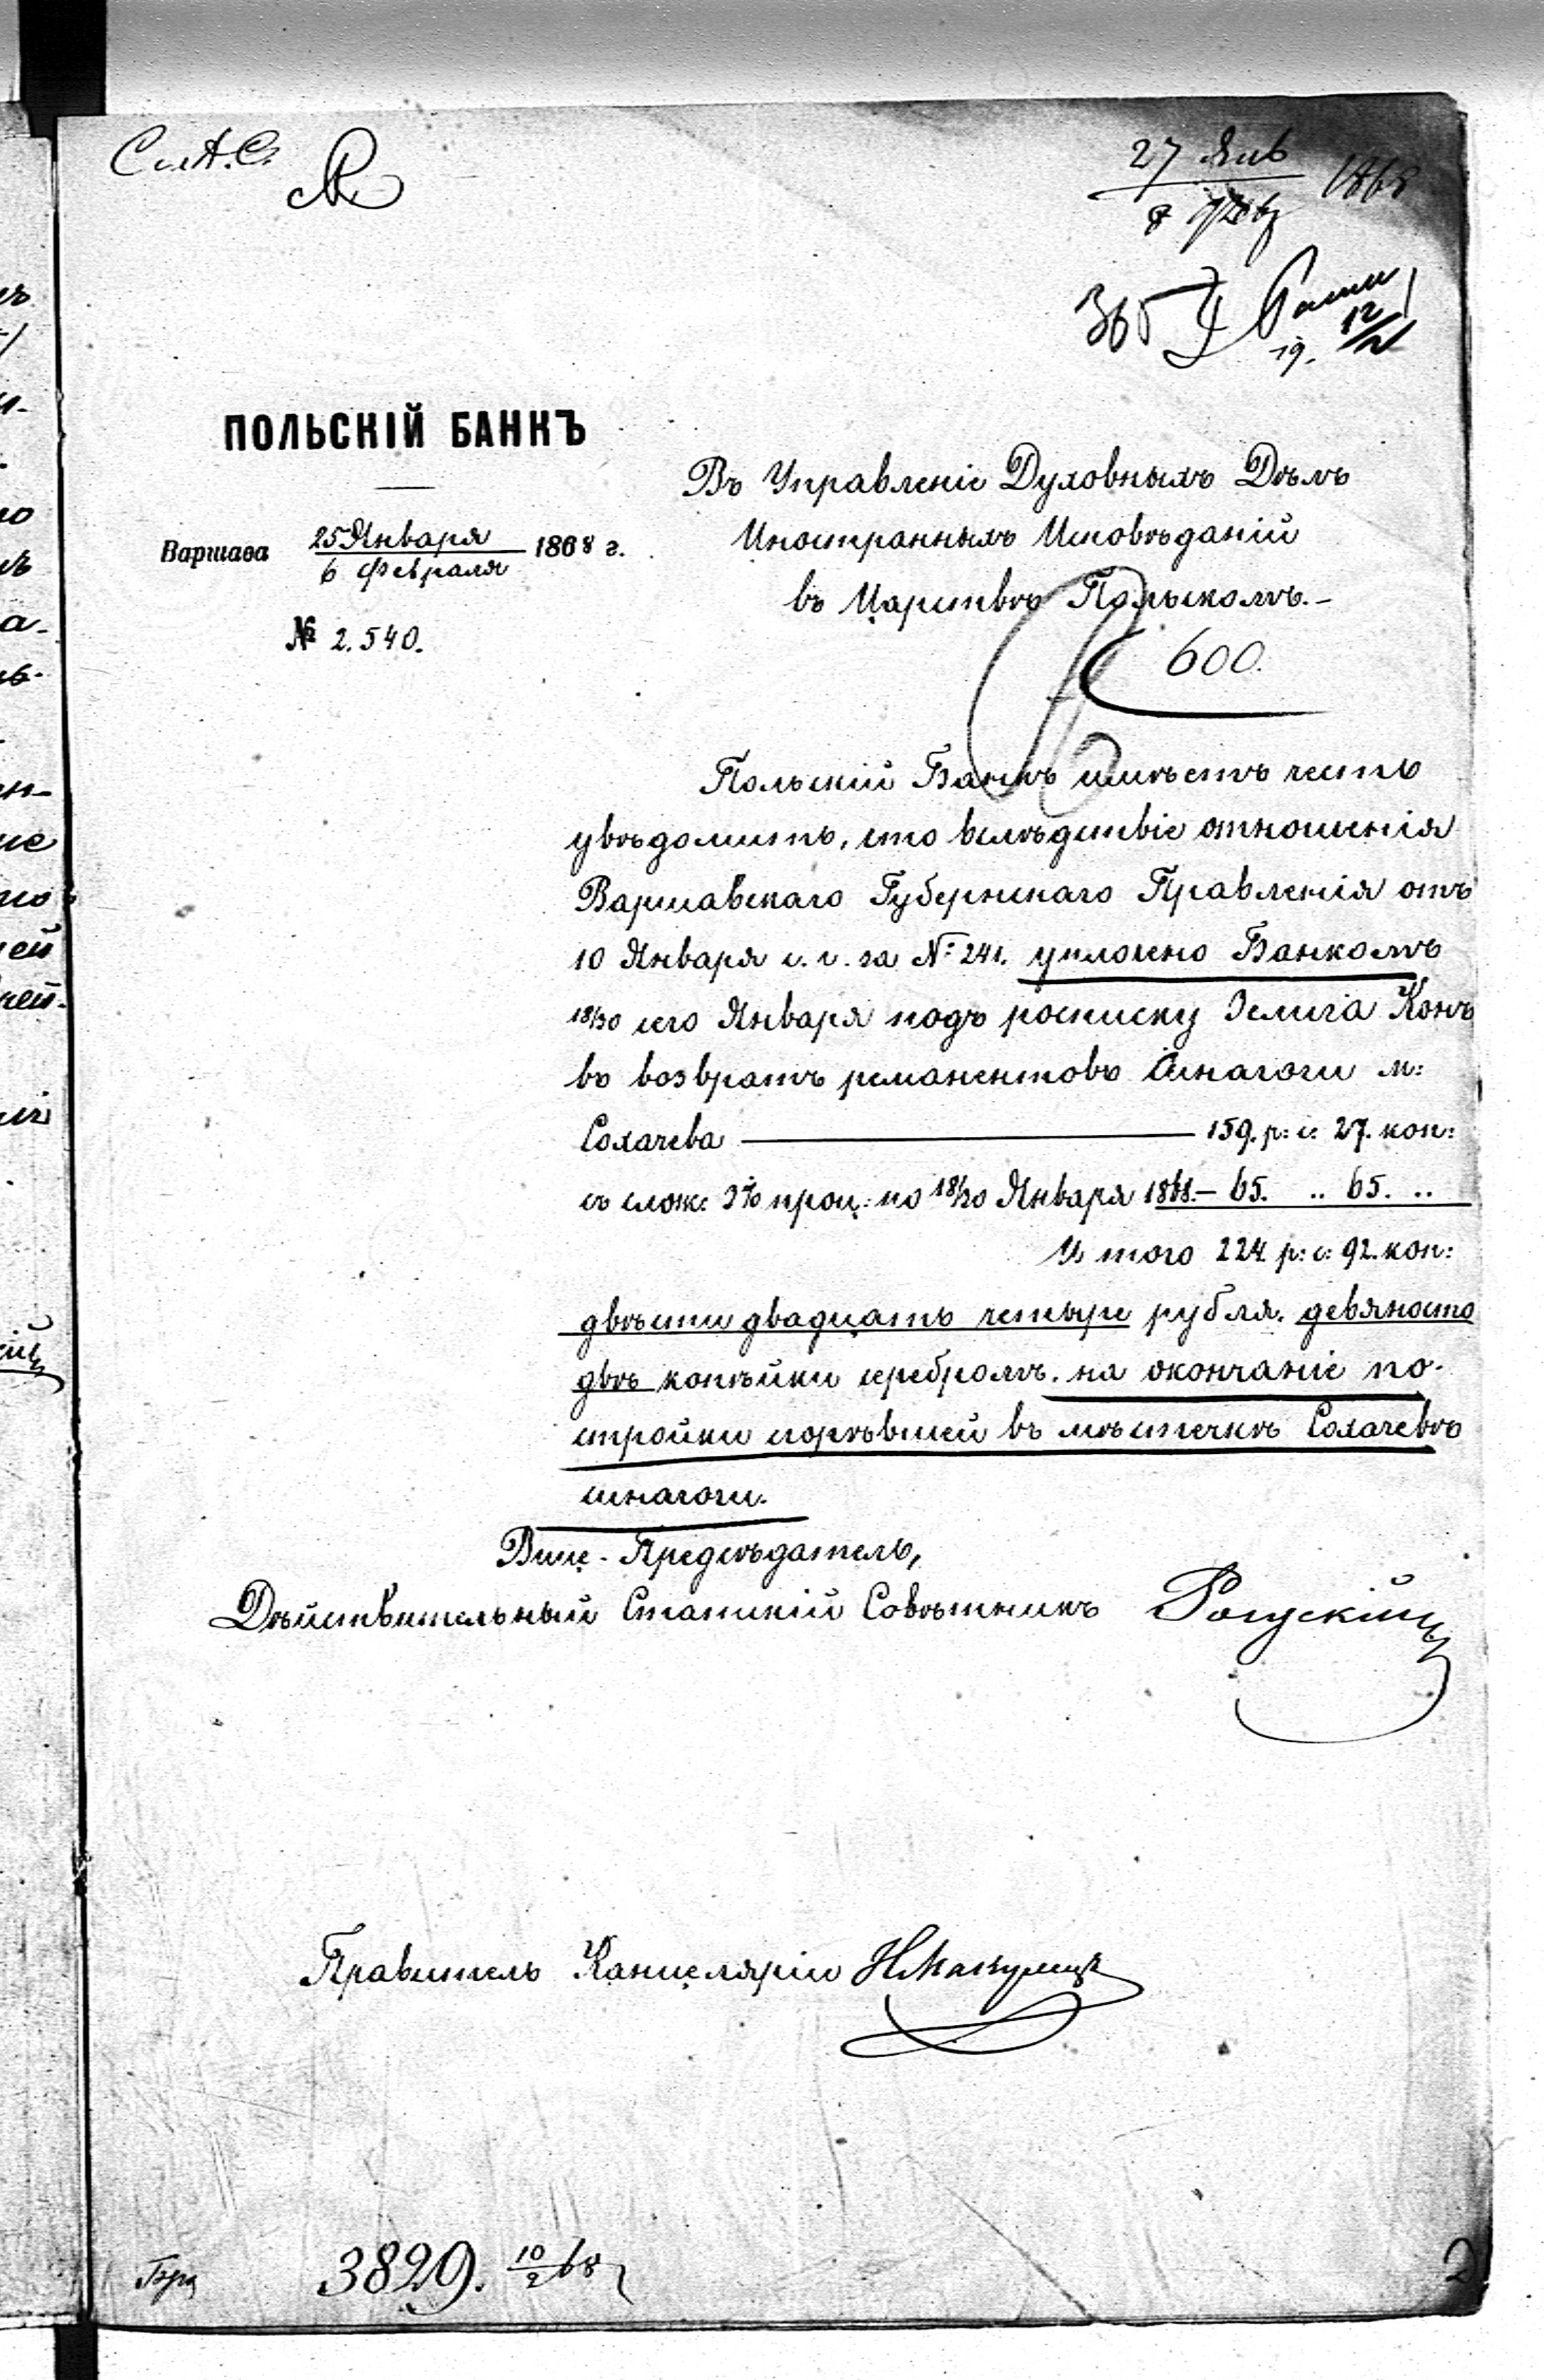 27 Янв 1868
8 Фев
365
12/2
19.
ПОЛЬСКІЙ БАНКЪ
Варшава 25 Января 1868 г.
6 Февраля
№ 2.540.
Въ Управленіе Духовныхъ Дѣлъ
Иностранныхъ Исповѣданій
въ Царствѣ Польскомъ.-
600.
Польскій Банкъ имѣетъ честь
увѣдомить, что вслѣдствіе отношенія
Варшавскаго Губернскаго Правленія отъ
10 Января с. г. за № 241. уплочено Банкомъ
18/30 сего Января подъ росписку Зелига Конъ
въ возвратъ реманентовъ Синагоги м:
Сохачева — 159. р: с: 27. коп:
съ слож: 3% проц: по 18/30 Января 1868.- 65. .. 65. ..
И того 224 р: с: 92. коп:
двѣсти двадцать четыре рубля. девяносто
двѣ копѣйки серебромъ. на окончаніе по-
стройки сгорѣвшей въ мѣстечкѣ Сохачевѣ
синагоги.
Вице-Предсѣдатель,
Дѣйствительный Статскій Совѣтникъ
Правитель Канцеляріи
3829. 10/2 68
2